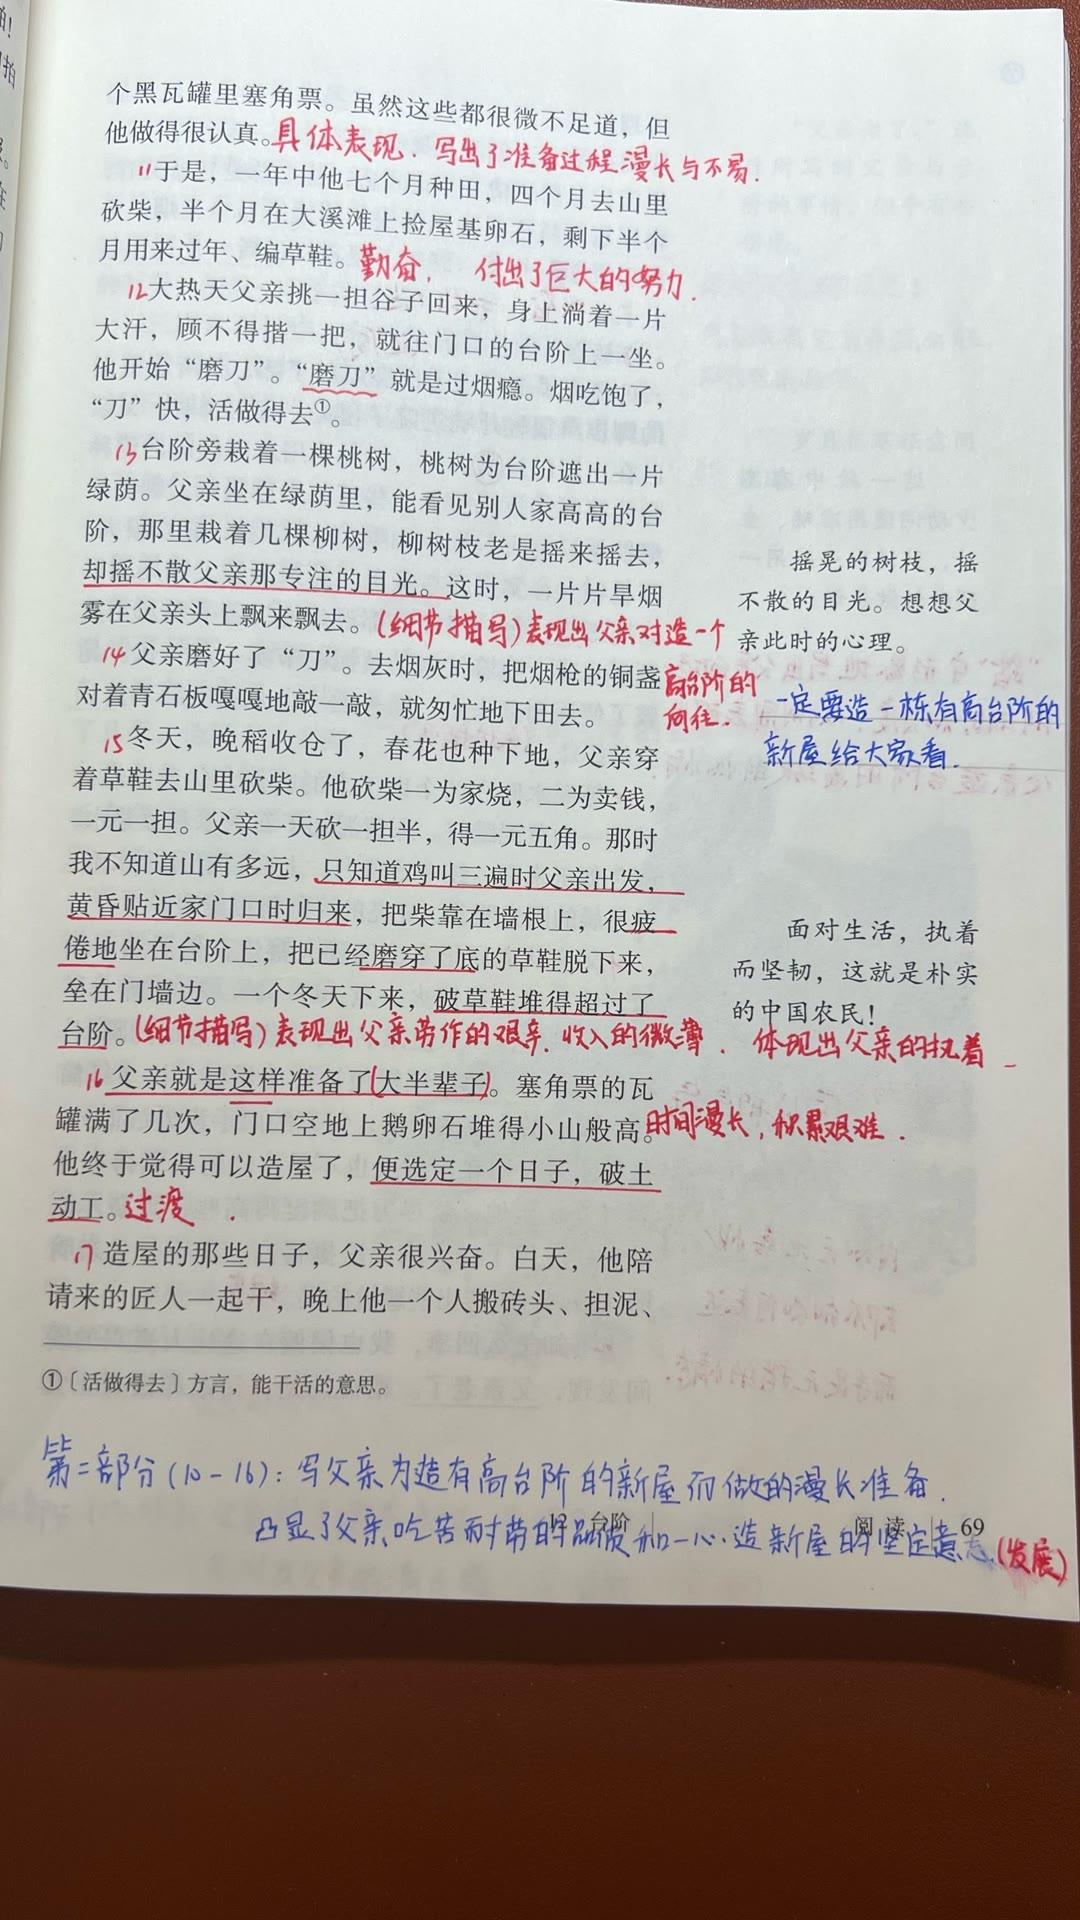 拍
个黑瓦罐里塞角票。虽然这些都很微不足道，但
他做得很认真。具体表现.写出了准备过程漫长与不易.
11于是，一年中他七个月种田，四个月去山里
砍柴，半个月在大溪滩上捡屋基卵石，剩下半个
月用来过年、编草鞋。勤奋. 付出了巨大的努力.
12大热天父亲挑一担谷子回来，身上淌着一片
大汗，顾不得揩一把，就往门口的台阶上一坐。
他开始“磨刀”。“磨刀”就是过烟瘾。烟吃饱了，
“刀”快，活做得去①。
13台阶旁栽着一棵桃树，桃树为台阶遮出一片
绿荫。父亲坐在绿荫里，能看见别人家高高的台
阶，那里栽着几棵柳树，柳树枝老是摇来摇去，
却摇不散父亲那专注的目光。这时，一片片旱烟
雾在父亲头上飘来飘去。(细节描写)表现出父亲对造一个
高台阶的
向往.
摇晃的树枝，摇
不散的目光。想想父
亲此时的心理。
一定要造一栋有高台阶的
新屋给大家看.
14父亲磨好了“刀”。去烟灰时，把烟枪的铜盏
对着青石板嘎嘎地敲一敲，就匆忙地下田去。
15冬天，晚稻收仓了，春花也种下地，父亲穿
着草鞋去山里砍柴。他砍柴一为家烧，二为卖钱，
一元一担。父亲一天砍一担半，得一元五角。那时
我不知道山有多远，只知道鸡叫三遍时父亲出发，
黄昏贴近家门口时归来，把柴靠在墙根上，很疲
倦地坐在台阶上，把已经磨穿了底的草鞋脱下来，
垒在门墙边。一个冬天下来，破草鞋堆得超过了
台阶。(细节描写)表现出父亲劳作的艰辛.收入的微薄. 体现出父亲的执着
面对生活，执着
而坚韧，这就是朴实
的中国农民！
16父亲就是这样准备了(大半辈子)。塞角票的瓦
罐满了几次，门口空地上鹅卵石堆得小山般高。时间漫长，积累艰难.
他终于觉得可以造屋了，便选定一个日子，破土
动工。过渡.
17造屋的那些日子，父亲很兴奋。白天，他陪
请来的匠人一起干，晚上他一个人搬砖头、担泥、
①〔活做得去〕方言，能干活的意思。
第二部分(10-16):写父亲为造有高台阶的新屋而做的漫长准备.
凸显了父亲吃苦耐劳的品质和一心造新屋的坚定意志.(发展)
12 台阶 阅读 69